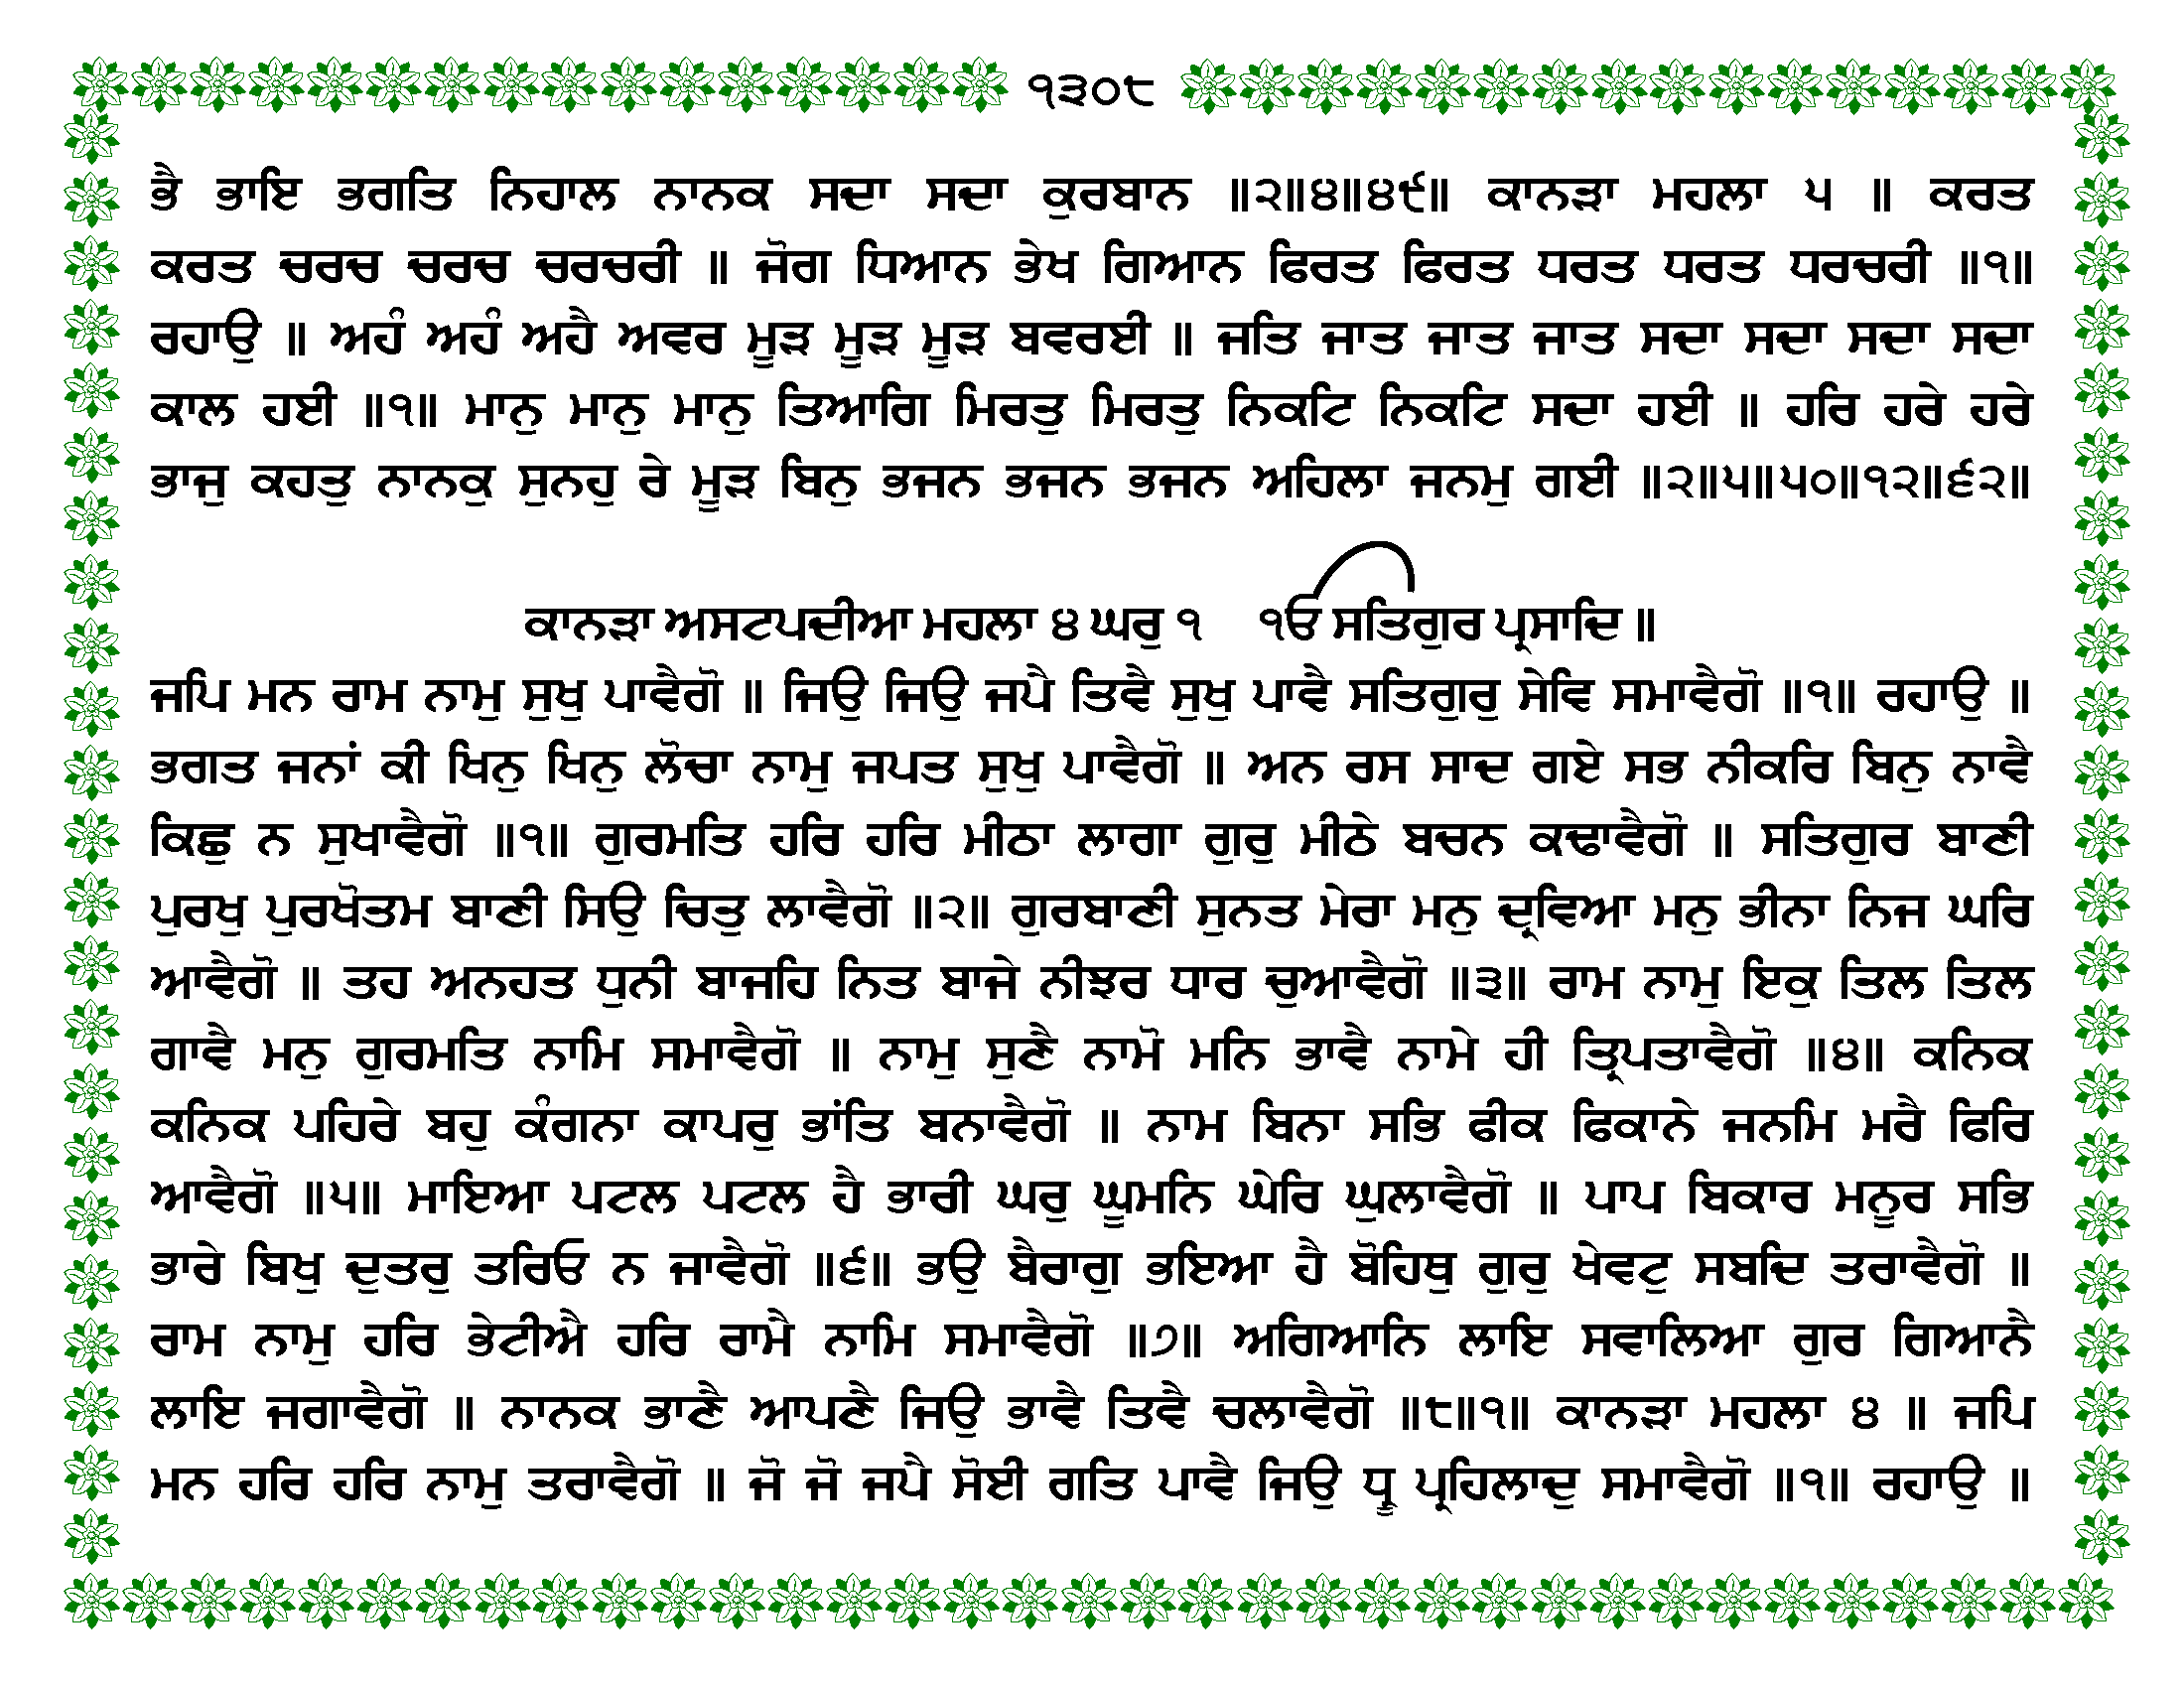 ੧੩੦੮
ਭੈ ਭਾਇ ਭਗਤਿ ਨਿਹਾਲ ਨਾਨਕ ਸਦਾ ਸਦਾ ਕੁਰਬਾਨ ॥੨॥੪॥੪੯॥ ਕਾਨੜਾ ਮਹਲਾ ੫ ॥ ਕਰਤ
ਕਰਤ ਚਰਚ ਚਰਚ ਚਰਚਰੀ ॥ ਜੋਗ ਧਿਆਨ ਭੇਖ ਗਿਆਨ ਫਿਰਤ ਫਿਰਤ ਧਰਤ ਧਰਤ ਧਰਚਰੀ ॥੧॥
ਰਹਾਉ ॥ ਅਹੰ ਅਹੰ ਅਹੈ ਅਵਰ ਮੂੜ ਮੂੜ ਮੂੜ ਬਵਰਈ ॥ ਜਤਿ ਜਾਤ ਜਾਤ ਜਾਤ ਸਦਾ ਸਦਾ ਸਦਾ ਸਦਾ
ਕਾਲ ਹਈ ॥੧॥ ਮਾਨੁ ਮਾਨੁ ਮਾਨੁ ਤਿਆਗਿ ਮਿਰਤੁ ਮਿਰਤੁ ਨਿਕਟਿ ਨਿਕਟਿ ਸਦਾ ਹਈ ॥ ਹਰਿ ਹਰੇ ਹਰੇ
ਭਾਜੁ ਕਹਤੁ ਨਾਨਕੁ ਸੁਨਹੁ ਰੇ ਮੂੜ ਬਿਨੁ ਭਜਨ ਭਜਨ ਭਜਨ ਅਹਿਲਾ ਜਨਮੁ ਗਈ ॥੨॥੫॥੫੦॥੧੨॥੬੨॥
ਕਾਨੜਾ ਅਸਟਪਦੀਆ ਮਹਲਾ ੪ ਘਰੁ ੧ ੴ ਸਤਿਗੁਰ ਪ੍ਰਸਾਦਿ ॥
ਜਪਿ ਮਨ ਰਾਮ ਨਾਮੁ ਸੁਖੁ ਪਾਵੈਗੋ ॥ ਜਿਉ ਜਿਉ ਜਪੈ ਤਿਵੈ ਸੁਖੁ ਪਾਵੈ ਸਤਿਗੁਰੁ ਸੇਵਿ ਸਮਾਵੈਗੋ ॥੧॥ ਰਹਾਉ ॥
ਭਗਤ ਜਨਾਂ ਕੀ ਖਿਨੁ ਖਿਨੁ ਲੋਚਾ ਨਾਮੁ ਜਪਤ ਸੁਖੁ ਪਾਵੈਗੋ ॥ ਅਨ ਰਸ ਸਾਦ ਗਏ ਸਭ ਨੀਕਰਿ ਬਿਨੁ ਨਾਵੈ
ਕਿਛੁ ਨ ਸੁਖਾਵੈਗੋ ॥੧॥ ਗੁਰਮਤਿ ਹਰਿ ਹਰਿ ਮੀਠਾ ਲਾਗਾ ਗੁਰੁ ਮੀਠੇ ਬਚਨ ਕਢਾਵੈਗੋ ॥ ਸਤਿਗੁਰ ਬਾਣੀ
ਪੁਰਖੁ ਪੁਰਖੋਤਮ ਬਾਣੀ ਸਿਉ ਚਿਤੁ ਲਾਵੈਗੋ ॥੨॥ ਗੁਰਬਾਣੀ ਸੁਨਤ ਮੇਰਾ ਮਨੁ ਦ੍ਰਵਿਆ ਮਨੁ ਭੀਨਾ ਨਿਜ ਘਰਿ
ਆਵੈਗੋ ॥ ਤਹ ਅਨਹਤ ਧੁਨੀ ਬਾਜਹਿ ਨਿਤ ਬਾਜੇ ਨੀਝਰ ਧਾਰ ਚੁਆਵੈਗੋ ॥੩॥ ਰਾਮ ਨਾਮੁ ਇਕੁ ਤਿਲ ਤਿਲ
ਗਾਵੈ ਮਨੁ ਗੁਰਮਤਿ ਨਾਮਿ ਸਮਾਵੈਗੋ ॥ ਨਾਮੁ ਸੁਣੈ ਨਾਮੋ ਮਨਿ ਭਾਵੈ ਨਾਮੇ ਹੀ ਤ੍ਰਿਪਤਾਵੈਗੋ ॥੪॥ ਕਨਿਕ
ਕਨਿਕ ਪਹਿਰੇ ਬਹੁ ਕੰਗਨਾ ਕਾਪਰੁ ਭਾਂਤਿ ਬਨਾਵੈਗੋ ॥ ਨਾਮ ਬਿਨਾ ਸਭਿ ਫੀਕ ਫਿਕਾਨੇ ਜਨਮਿ ਮਰੈ ਫਿਰਿ
ਆਵੈਗੋ ॥੫॥ ਮਾਇਆ ਪਟਲ ਪਟਲ ਹੈ ਭਾਰੀ ਘਰੁ ਘੂਮਨਿ ਘੇਰਿ ਘੁਲਾਵੈਗੋ ॥ ਪਾਪ ਬਿਕਾਰ ਮਨੂਰ ਸਭਿ
ਭਾਰੇ ਬਿਖੁ ਦੁਤਰੁ ਤਰਿਓ ਨ ਜਾਵੈਗੋ ॥੬॥ ਭਉ ਬੈਰਾਗੁ ਭਇਆ ਹੈ ਬੋਹਿਥੁ ਗੁਰੁ ਖੇਵਟੁ ਸਬਦਿ ਤਰਾਵੈਗੋ ॥
ਰਾਮ ਨਾਮੁ ਹਰਿ ਭੇਟੀਐ ਹਰਿ ਰਾਮੈ ਨਾਮਿ ਸਮਾਵੈਗੋ ॥੭॥ ਅਗਿਆਨਿ ਲਾਇ ਸਵਾਲਿਆ ਗੁਰ ਗਿਆਨੈ
ਲਾਇ ਜਗਾਵੈਗੋ ॥ ਨਾਨਕ ਭਾਣੈ ਆਪਣੈ ਜਿਉ ਭਾਵੈ ਤਿਵੈ ਚਲਾਵੈਗੋ ॥੮॥੧॥ ਕਾਨੜਾ ਮਹਲਾ ੪ ॥ ਜਪਿ
ਮਨ ਹਰਿ ਹਰਿ ਨਾਮੁ ਤਰਾਵੈਗੋ ॥ ਜੋ ਜੋ ਜਪੈ ਸੋਈ ਗਤਿ ਪਾਵੈ ਜਿਉ ਧ੍ਰੂ ਪ੍ਰਹਿਲਾਦੁ ਸਮਾਵੈਗੋ ॥੧॥ ਰਹਾਉ ॥